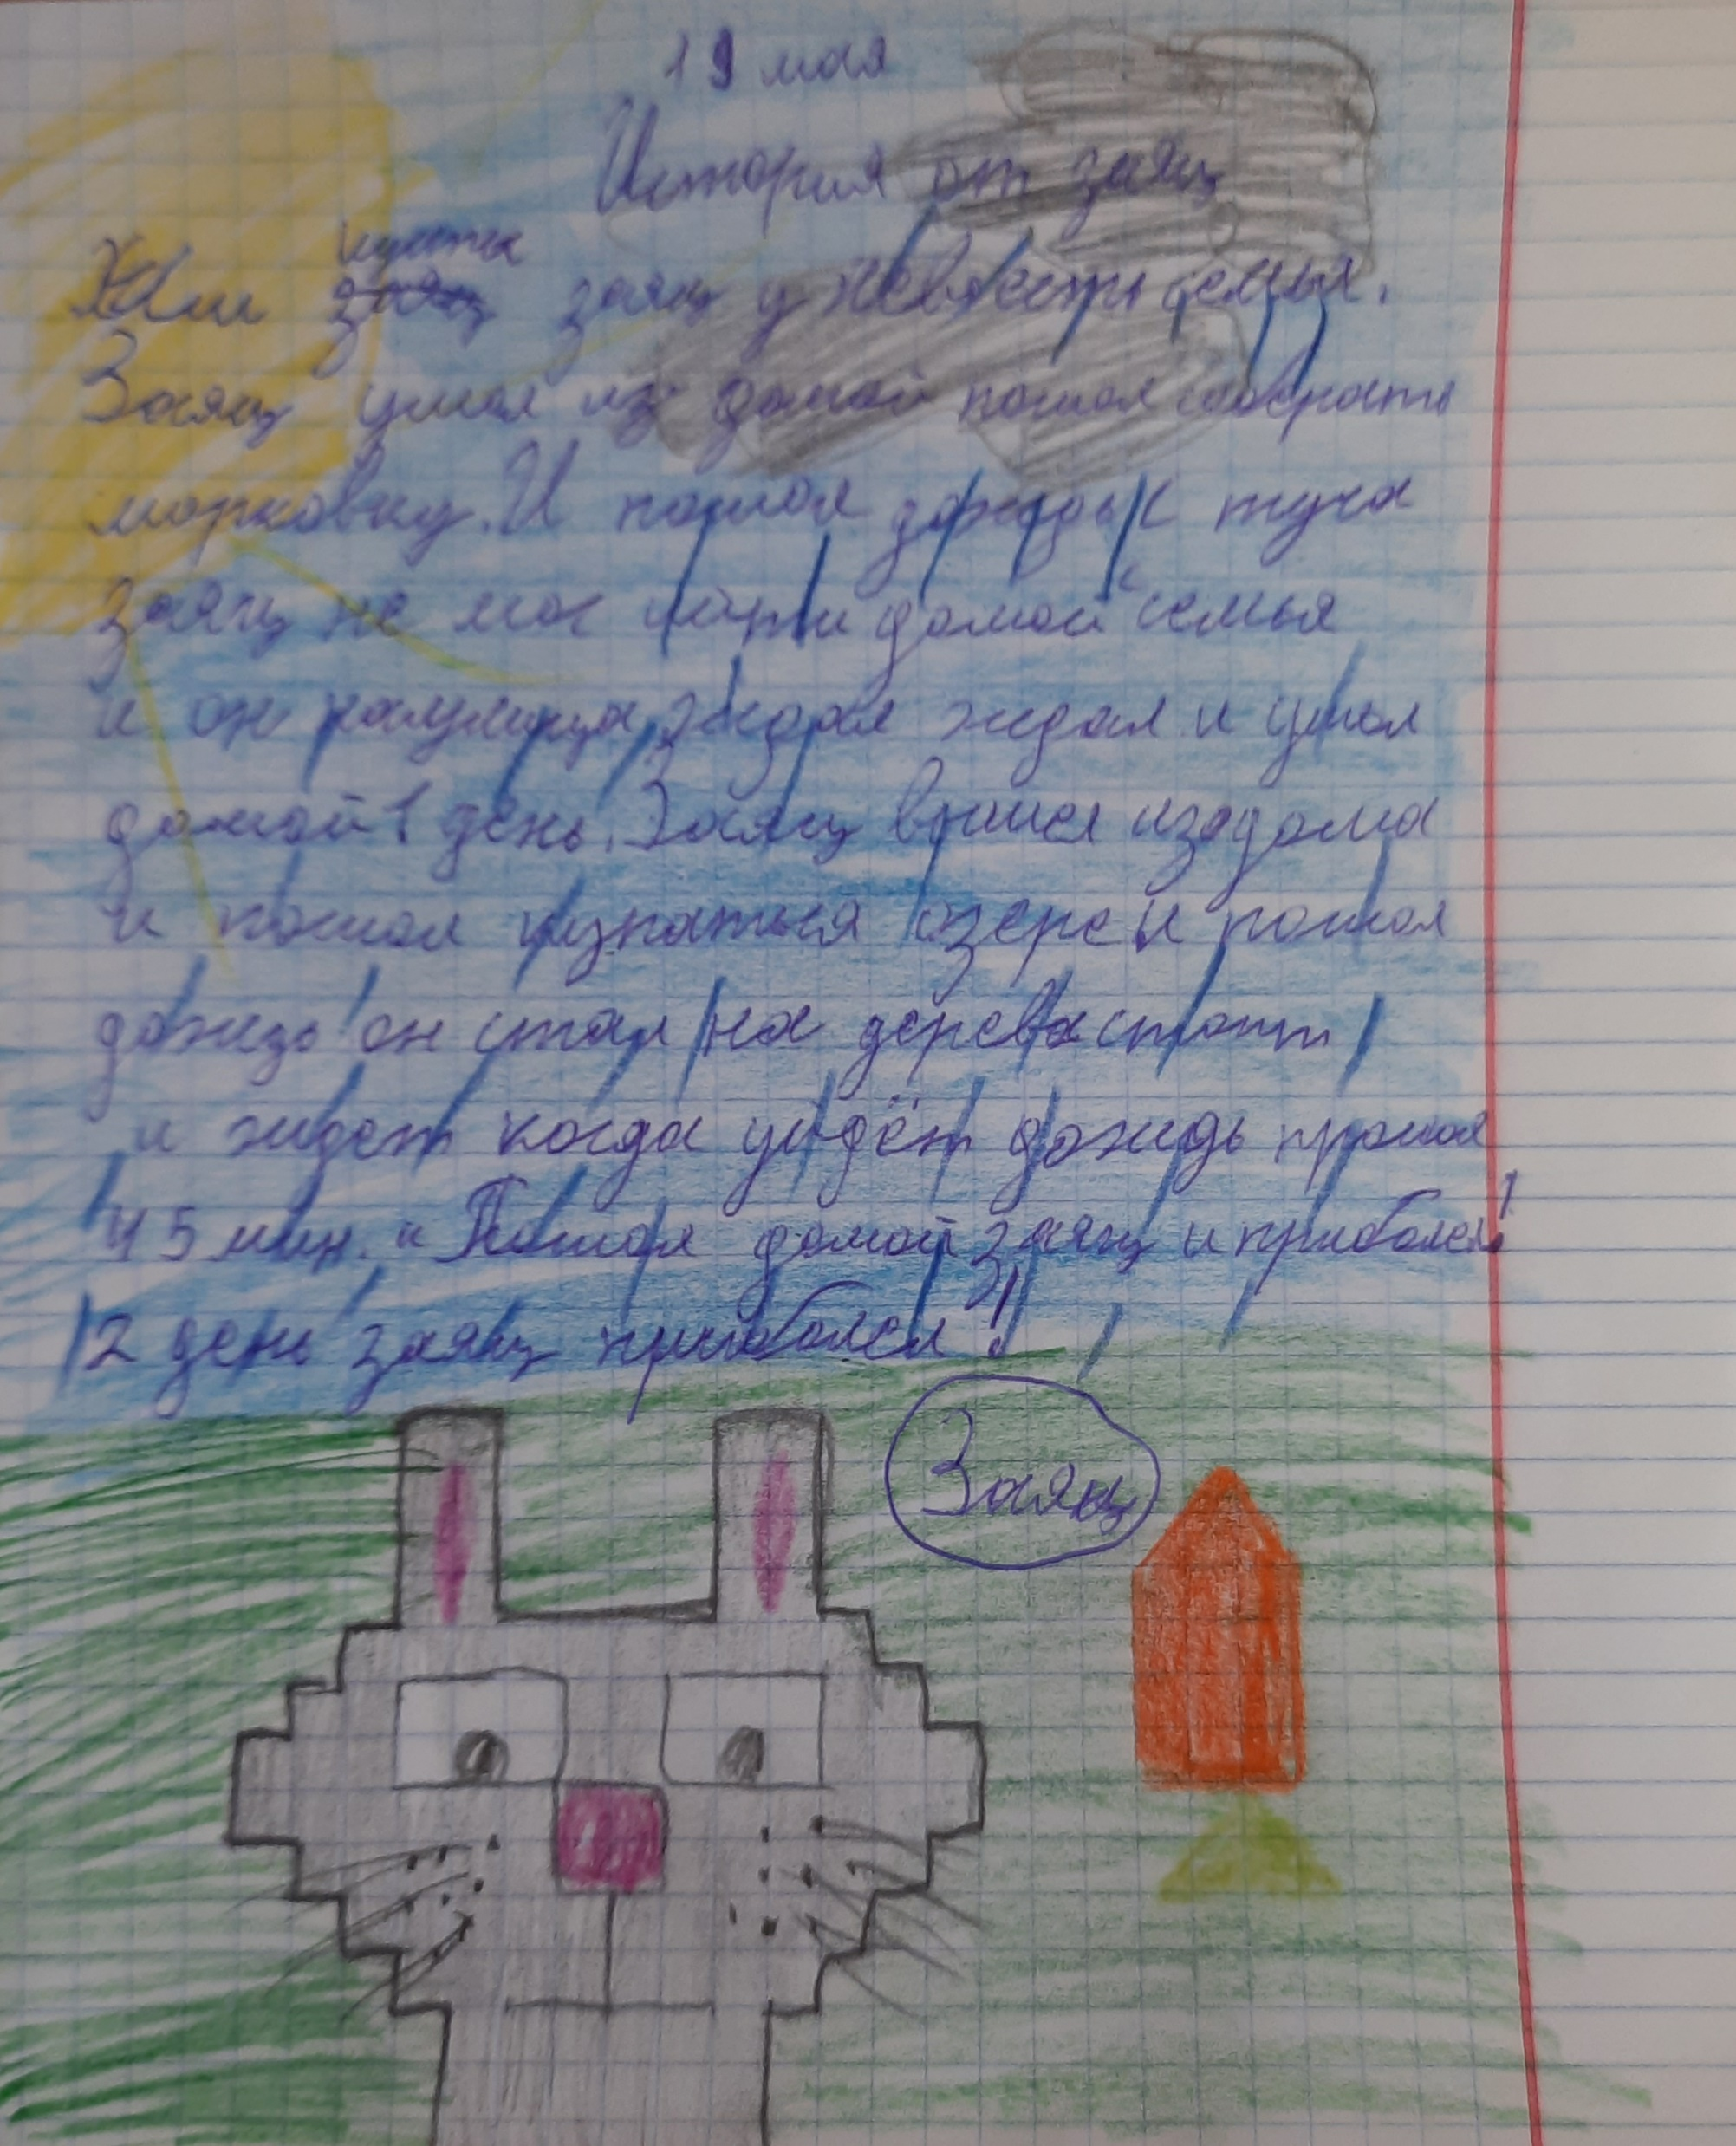 19 мая
История от заяц
Жил заяц у невѣсты семья.
Заяц ушол из домой пошол собрать
морковку. И пошол дождь к туча
заяц не мог идти домой семья
и он ждал ждал и ушол
домой 1 день. Заяц вышел изодома
и пошол купаться озере и пошол
дождь он стал на дерева стоит
и ждет когда уйдёт дождь прошол
45 мин. и Пошол домой заяц и приболел!
2 день заяц приболел!
Заяц